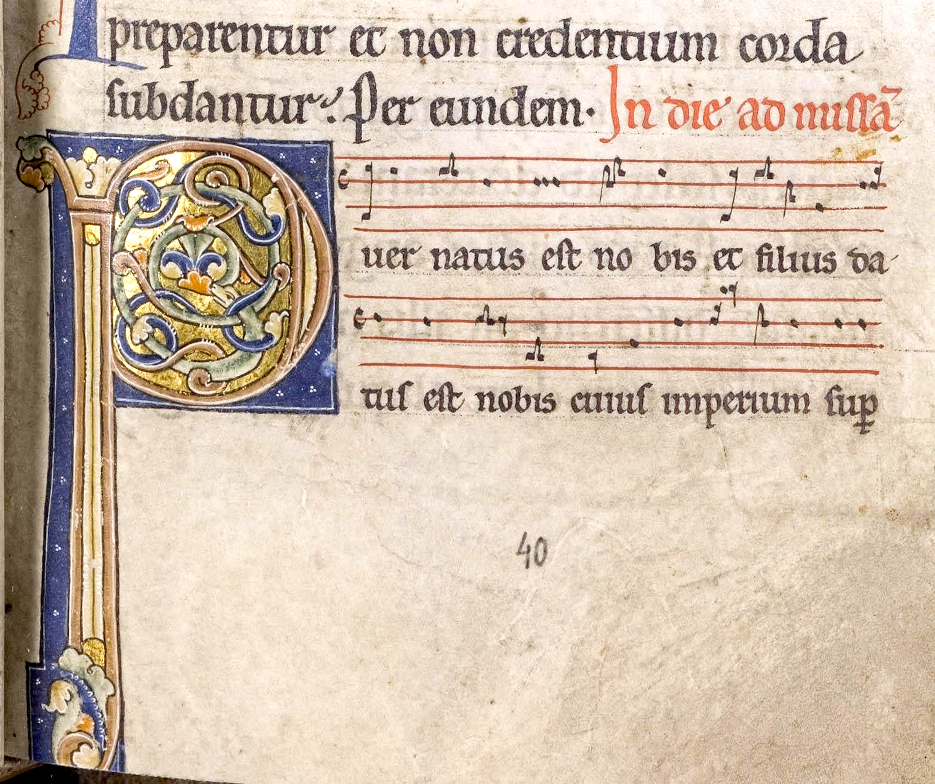 preparentur et non credentium corda
subdantur. Per eundem. In die ad missā
Puer natus est no bis et filius da-
tus est nobis cuius imperium sup̱
40